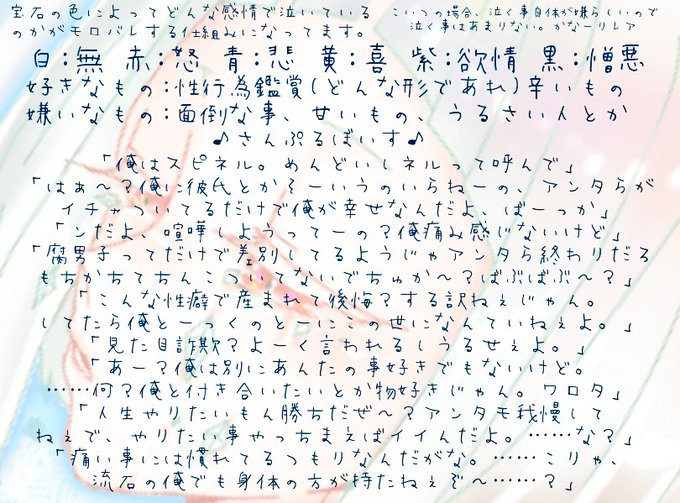 宝石の色によってどんな感情で泣いている
のかがモロバレする仕組みになってます。
こいつの場合、泣く事自体が嫌らしいので
泣く事はあまりない。かなーりレア
白:無 赤:怒 青:悲 黄:喜 紫:欲情 黒:憎悪
好きなもの:性行為鑑賞(どんな形であれ)辛いもの
嫌いなもの:面倒な事、甘いもの、うるさい人とか
♪さんぷるぼいす♪
「俺はスピネル。めんどいしネルって呼んで」
「はぁ〜?俺に彼氏とかそーいうのいらねーの、アンタらが
イチャついてるだけで俺が幸せなんだよ、ばーっか」
「ンだよ、喧嘩しようってーの?俺痛み感じないけど」
「腐男子ってだけで差別してるようじゃアンタら終わりだろ
もちかちてちんこついてないでちゅか〜?ばぶばぶ〜?」
「こんな性癖で産まれて後悔?する訳ねぇじゃん。
してたら俺とーっくのとーにこの世になんていねぇよ。」
「見た目詐欺?よーく言われるしうるせぇよ。」
「あー?俺は別にあんたの事好きでもないけど。
……何?俺と付き合いたいとか物好きじゃん。ワロタ」
「人生やりたいもん勝ちだぜ〜?アンタモ我慢して
ねぇで、やりたい事やっちまえばイイんだよ。……な?」
「痛い事には慣れてるつもりなんだがな。……こりゃ、
流石の俺でも身体の方が持たねぇぞ〜……?」